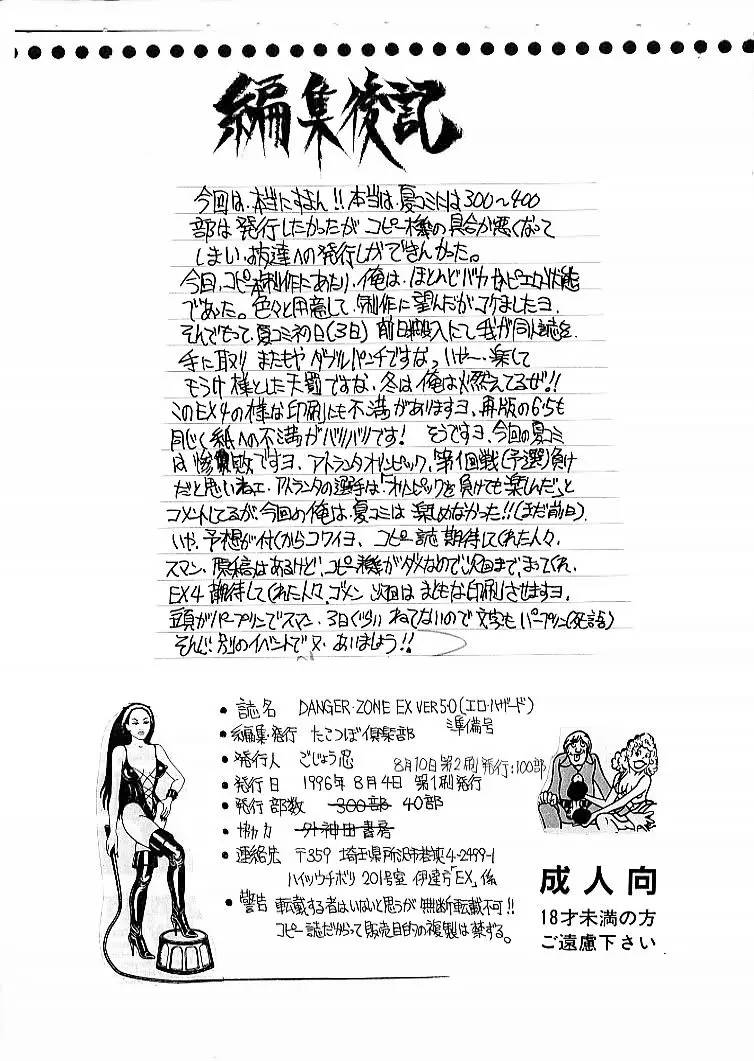 編集後記
今回は、本当にすまん!!本当は、夏コミには300〜400
部は発行したかったが コピー機の具合が悪くなって
しまい、お友達への発行しかできんかった。
今回、コピー本制作にあたり、俺は、ほとんどバカなピエロ状態
であった。色々と用意して、制作に望んだがコケましたヨ、
そんでもって、夏コミ初日(3日) 前日搬入にて我が同人誌を、
手に取り またもや ダブルパンチですな、いや〜、楽して
もうけ様とした天罰ですな、冬は俺は燃えてるぜ!!
このEX4の様な印刷にも不満がありますヨ、再版の6・5も
同じく紙への不満がバリバリです! そうですヨ、今回の夏コミ
は惨敗ですヨ、アトランタオリンピック、第1回戦(予選)負け
だと思いねェ、アトランタの選手は「オリンピックを負けても楽しんだ」と
コメントしてるが、今回の俺は、夏コミは 楽しめなかった!!(まだ前日)、
いや、予想が付くからコワイヨ、コピー誌 期待してくれた人々、
スマン、原稿はあるけど、コピー機がダメなので次回まで、まってくれ、
EX4 期待してくれた人々、ゴメン 次回は まともな印刷しさせますヨ、
頭がパープリンでスマン、3日ぐらい ねてないので 文字も パープリン(死語)
そんじゃ 別のイベントで又、あいましょう!!
• 誌名 DANGER・ZONE EX VER5・0(エロ・ハザード)
準備号
• 編集・発行 たこつぼ倶楽部
• 発行人 ごじょう忍
8月10日第2刷発行:100部
• 発行日 1996年8月4日 第1刷発行
• 発行部数 300部 40部
• 外神田書房
• 連絡先 〒359 埼玉県所沢市 4-2499-1
ハイツウチボリ 201号室 伊達方「EX」係
• 警告 転載する者はいないと思うが 無断転載不可!!
コピー誌だからって販売目的の複製は禁ずる。
成人向
18才未満の方
ご遠慮下さい